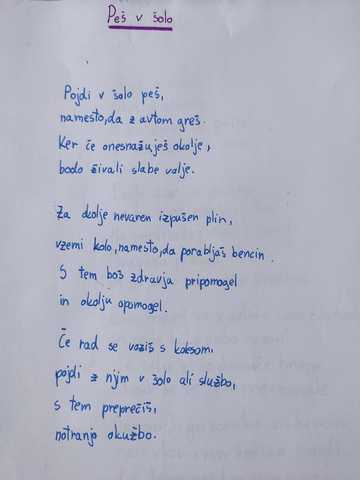 Peš v šolo
Pojdi v šolo peš,
namesto, da z avtom greš.
Ker če onesnažuješ okolje,
bodo živali slabe volje.
Za okolje nevaren izpušen plin,
vzemi kolo, namesto, da porabljaš bencin.
S tem boš zdravju pripomogel
in okolju opomogel.
Če rad se voziš s kolesom,
pojdi z njim v šolo ali službo,
s tem preprečiš,
notranjo okužbo.